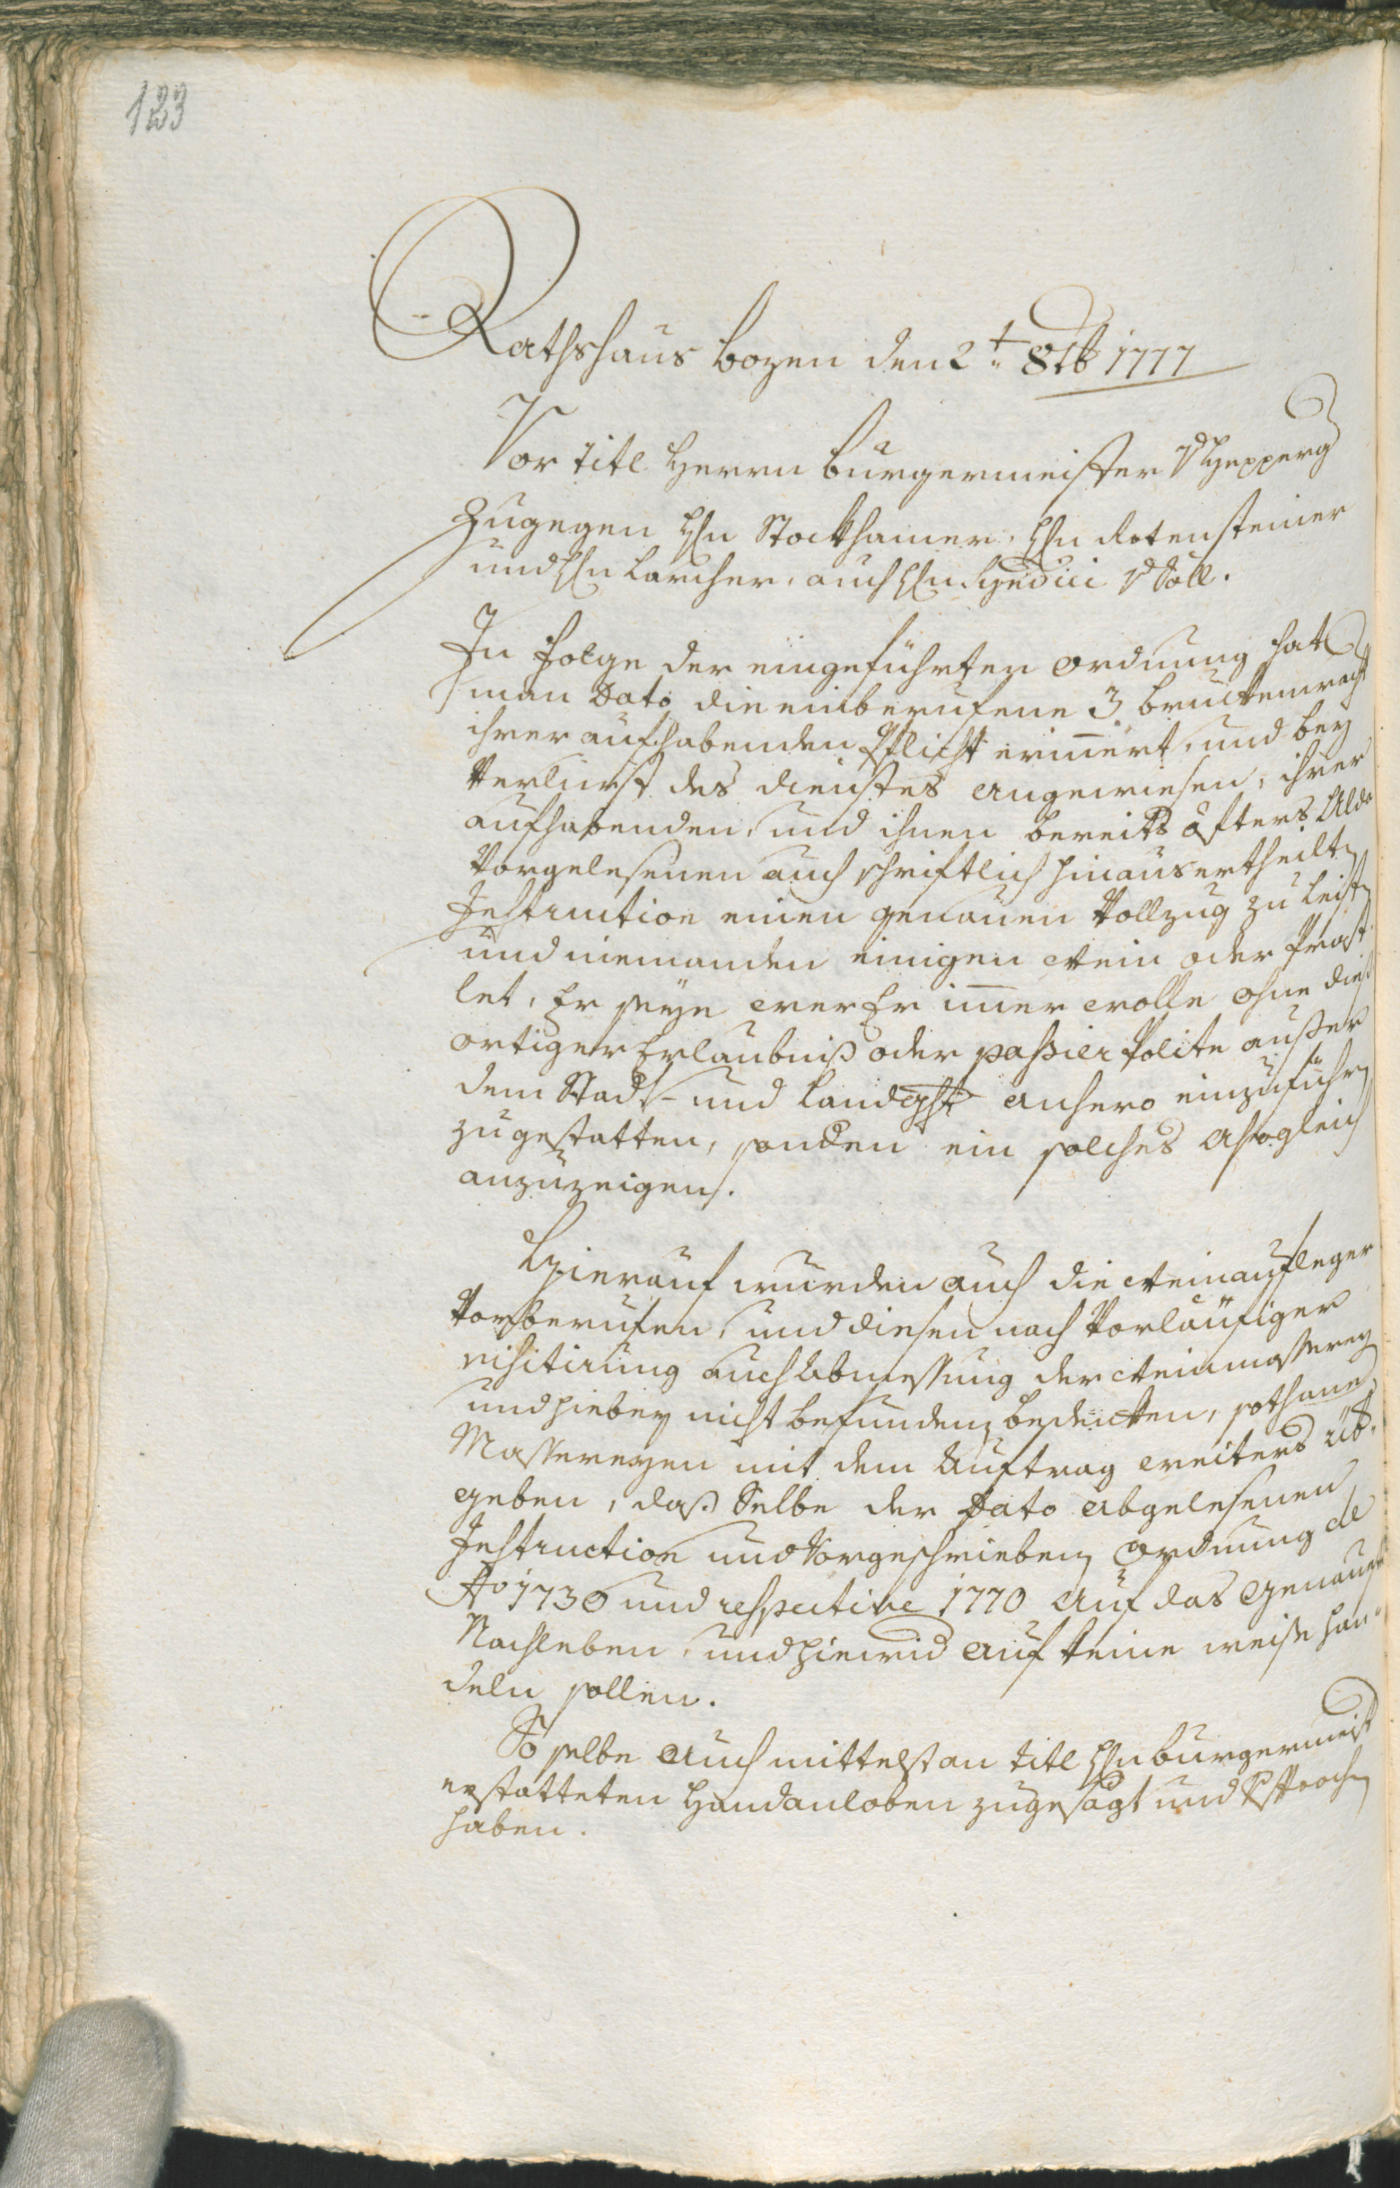 123
Rathshaus Bozen den 2.t 8tb 1777
Vor titl Herrn Burgermeister v Hepperg
Zugegen Hln Stockhamer, Hln Atensteiner
und Hln Larcher, auch Hln Syndici v Söll.
In Folge der eingeführten ordnung hat
man Dato die einberufene 3 Bruckenwacht
ihrer aufhabenden Pflicht erinnert, und bey
Verlurst des dienstes angewiesen, ihrer
aufhabenden, und ihnen bereits öfters Alda
Vorgelesenen auch schriftlich hinausertheilten
Instruction einen genauen Vollzug zu leisten
und niemanden einigen Wein oder Prast
let, Er seye wer Er immer wolle ohne dies
ortiger Erlaubniß oder passier Polite ausser
dem Stadt- und Landght anhero einzuführen
zu gestatten, sondern ein solches Alsogleich
anzuzeigen.
Hierauf wurden auch die Weinaufleger
Vorberufen, und diesen nach Vorläufiger
visitirung auch Abmessung der Weinmasserey
und hiebey nicht befundenen bedencken, sothane
Massereyen mit dem Auftrag weiters üb.
geben, daß Selbe der Dato abgelesenen
Instruction und Vorgeschriebenen Ordnung de
Ao 1730 und respective 1770 Auf das genaueste
Nachleben, und hierwid auf keine weise han
deln sollen.
So selbe auch mittelst an titl Hln burgermeist
erstatteten Handanloben zugesagt und Vsprochen
haben.